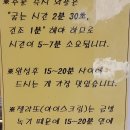 *주문 즉시 와플은
"굽는 시간 2분 30초,
건조 1분" 해야 하므로
시간이 5~7분 소요됩니다.
*완성후 15~20분 사이에
드시는 게 가장 맛있습니다.
*젤라또(아이스크림)는 금방
녹기 때문에 15~20분 안에